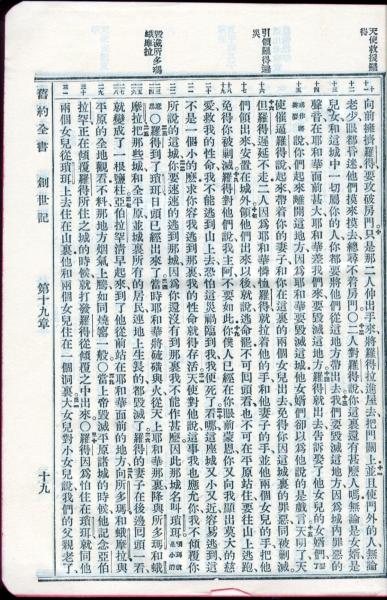 天使救援羅得
引領羅得避災
毀滅所多瑪蛾摩拉
向前擁擠羅得要攻破房門只是那二人伸出手來將羅得拉進屋去把門關上並且使門外的人無論
老少眼都昏迷他們摸來摸去總尋不着房門二人對羅得說你這裏還有甚麼人嗎無論是女婿是
兒女和這城中一切屬你的人你都要將他們從這地方帶出去我們要毀滅這地方因爲城內罪惡的
聲音在耶和華面前甚大耶和華差我們來要毀滅這地方羅得就出去告訴娶了他女兒的女婿們
說你們起來離開這地方因爲耶和華要毀滅這城他女婿們卻以爲他說的是戲言天明了天
使催逼羅得說起來帶着你的妻子和你在這裏的兩個女兒出去免得你因這城裏的罪惡同被剿滅
但羅得遲延不走二人因爲耶和華憐恤羅得就拉着他的手和他妻子的手並他兩個女兒的手把他
們領出來安置在城外領他們出來以後就說逃命罷不可回頭看也不可在平原站住要往山上逃跑
免得你被剿滅羅得對他們說我主阿不要如此你僕人已經在你眼前蒙恩你又向我顯出莫大的慈
愛救我的性命我不能逃到山上去恐怕這災禍臨到我我便死了看哪這座城又小又近容易逃到這
不是一個小的麼求你容我逃到那裏我的性命就得存活天使對他說這事我也應允你我不傾覆你
所說的這城你要速速的逃到那城因爲你還沒有到那裏我不能作甚麼因此那城名叫瑣珥
○羅得到了瑣珥日頭已經出來了當時耶和華將硫磺與火從天上耶和華那裏降與所多瑪和蛾
摩拉把那些城和全平原並城裏所有的居民連地上生長的都毀滅了羅得的妻子在後邊回頭一看
就變成了一根鹽柱亞伯拉罕清早起來到了他從前站在耶和華面前的地方向所多瑪和蛾摩拉與
平原的全地觀看不料那地方烟氣上騰如同燒窰一般○當上帝毀滅平原諸城的時候他記念亞伯
拉罕正在傾覆羅得所住之城的時候就打發羅得從傾覆之中出來○羅得因爲怕住在瑣珥就同他
兩個女兒從瑣珥上去住在山裏他和兩個女兒住在一個洞裏大女兒對小女兒說我們的父親老了
舊約全書 創世記 第十九章 十九